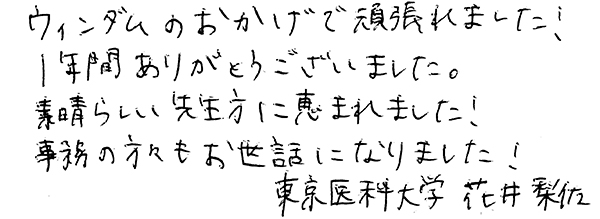 ウィンダムのおかげで頑張れました!
1年間ありがとうございました。
素晴らしい先生方に恵まれました!
事務の方々もお世話になりました!
東京医科大学 花井梨佐